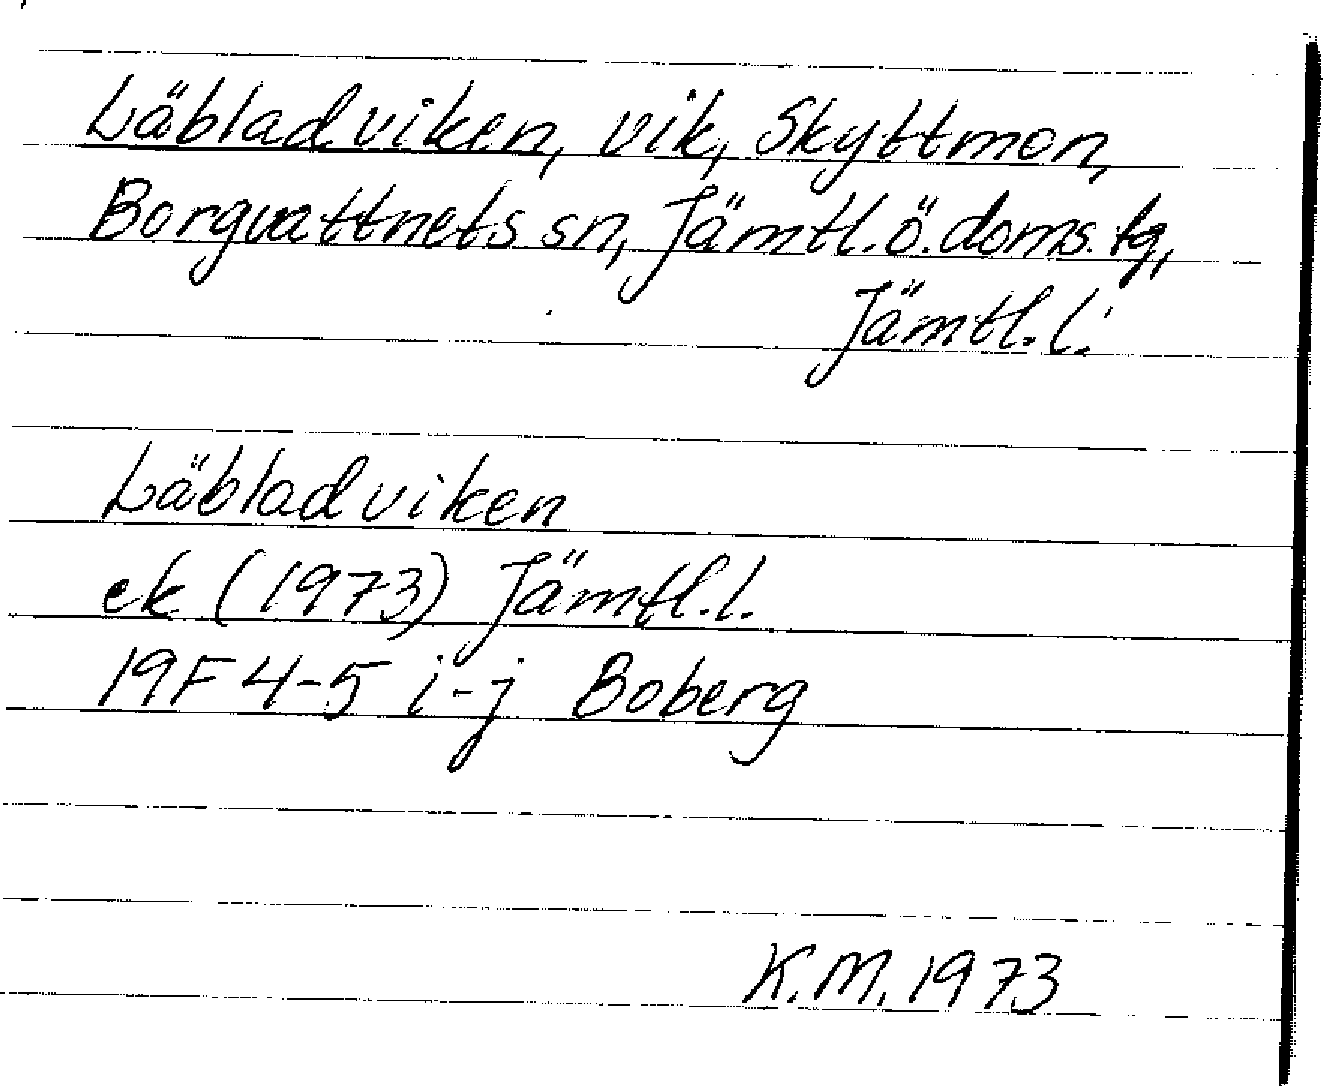 Läbladviken, vik, Skyttmon,
Borgvattnets sn, Jämtl. ö. doms. tg,
Jämtl. l.
Läbladviken
ek (1973) Jämtl. l.
19F 4-5 i-j Boberg
K.M. 1973